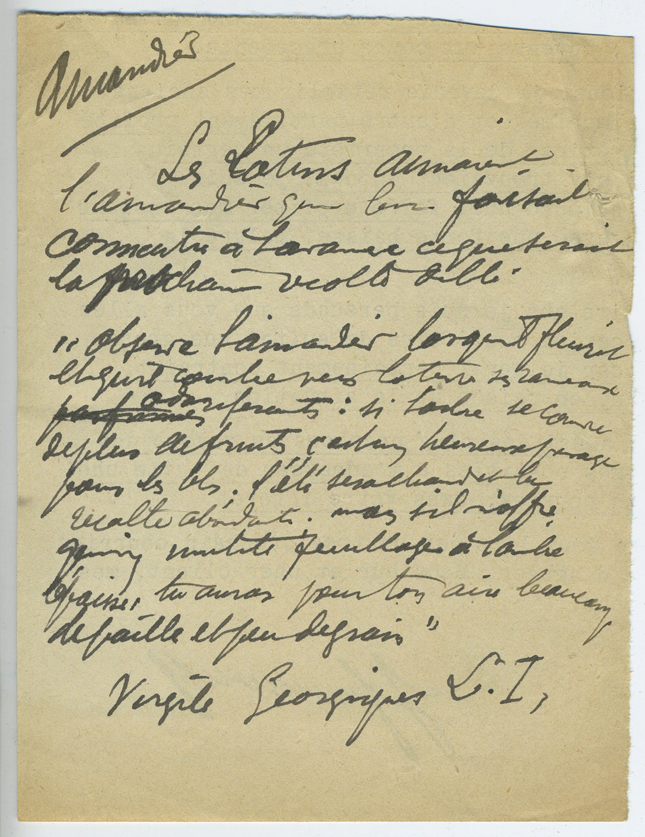 Amandier
Les Latins aimaient
l'amandier qui leur faisait
connaitre à l'avance ce que serait
la prochaine recolte de blé.
"observe l'amandier lorsqu'il fleurit
et qu'il courbe vers la terre ses rameaux
parfumés odoriferants : si l'arbre se couvre
de plus de fruits, c'est un heureux presage
pour les blés. l'été sera chaud et la
recolte abondante. mais s'il n'offre
qu'un inutile feuillage à l'ombre
épaisse, tu auras pour ton aire beaucoup
de paille et peu de grain"
Virgile Georgiques L. I,